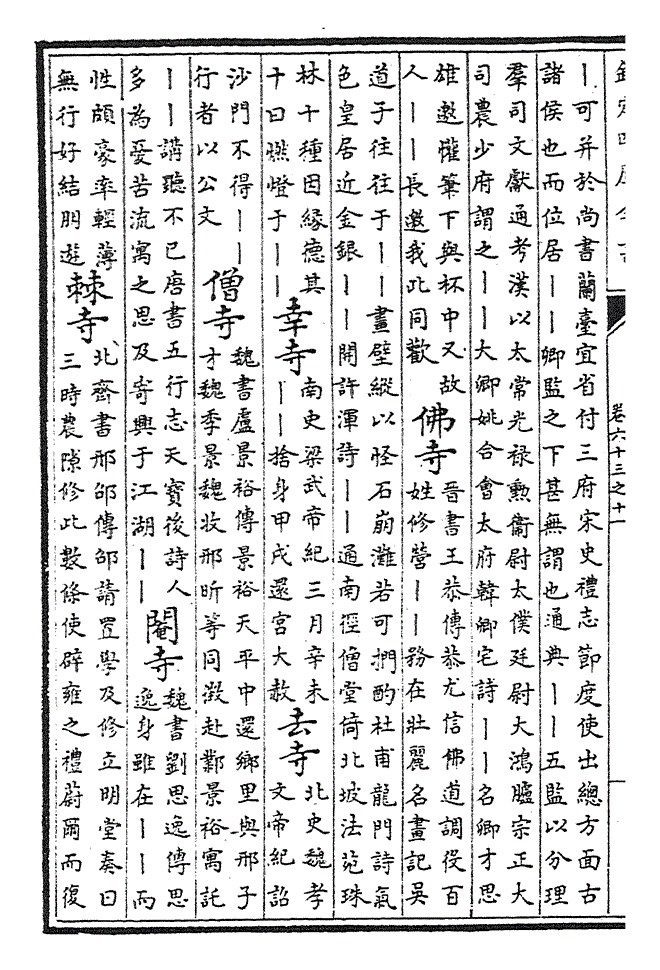 欽定四庫全書
卷六十三之十一
丨可并於尚書蘭臺宜省付三府宋史禮志節度使出總方面古
諸侯也而位居丨丨卿監之下甚無謂也通典丨丨五監以分理
羣司文獻通考漢以太常光禄勲衞尉太僕廷尉大鴻臚宗正大
司農少府謂之丨丨大卿姚合會太府韓卿宅詩丨丨名卿才思
雄邀懽筆下與杯中又故
人丨丨長邀我此同歡
佛寺
晉書王恭傳恭尤信佛道調役百
姓修營丨丨務在壯麗名畫記吳
道子往往于丨丨畫壁縱以怪石崩灘若可捫酌杜甫龍門詩氣
色皇居近金銀丨丨開許渾詩丨丨通南徑僧堂倚北坡法苑珠
林十種因緣德其
十曰燃燈于丨丨
幸寺
南史梁武帝紀三月辛未
丨丨捨身甲戌還宮大赦
去寺
北史魏孝
文帝紀詔
沙門不得丨丨
行者以公文
僧寺
魏書盧景裕傳景裕天平中還鄉里與邢子
才魏季景魏收邢昕等同徵赴鄴景裕寓託
丨丨講聽不已唐書五行志天寶後詩人
多為憂苦流寓之思及寄興于江湖丨丨
閹寺
魏書劉思逸傳思
逸身雖在丨丨而
性頗豪率輕薄
無行好結朋遊
棘寺
北齊書邢邵傳邵請置學及修立明堂奏曰
三時農隙修此數條使辟雍之禮蔚爾而復